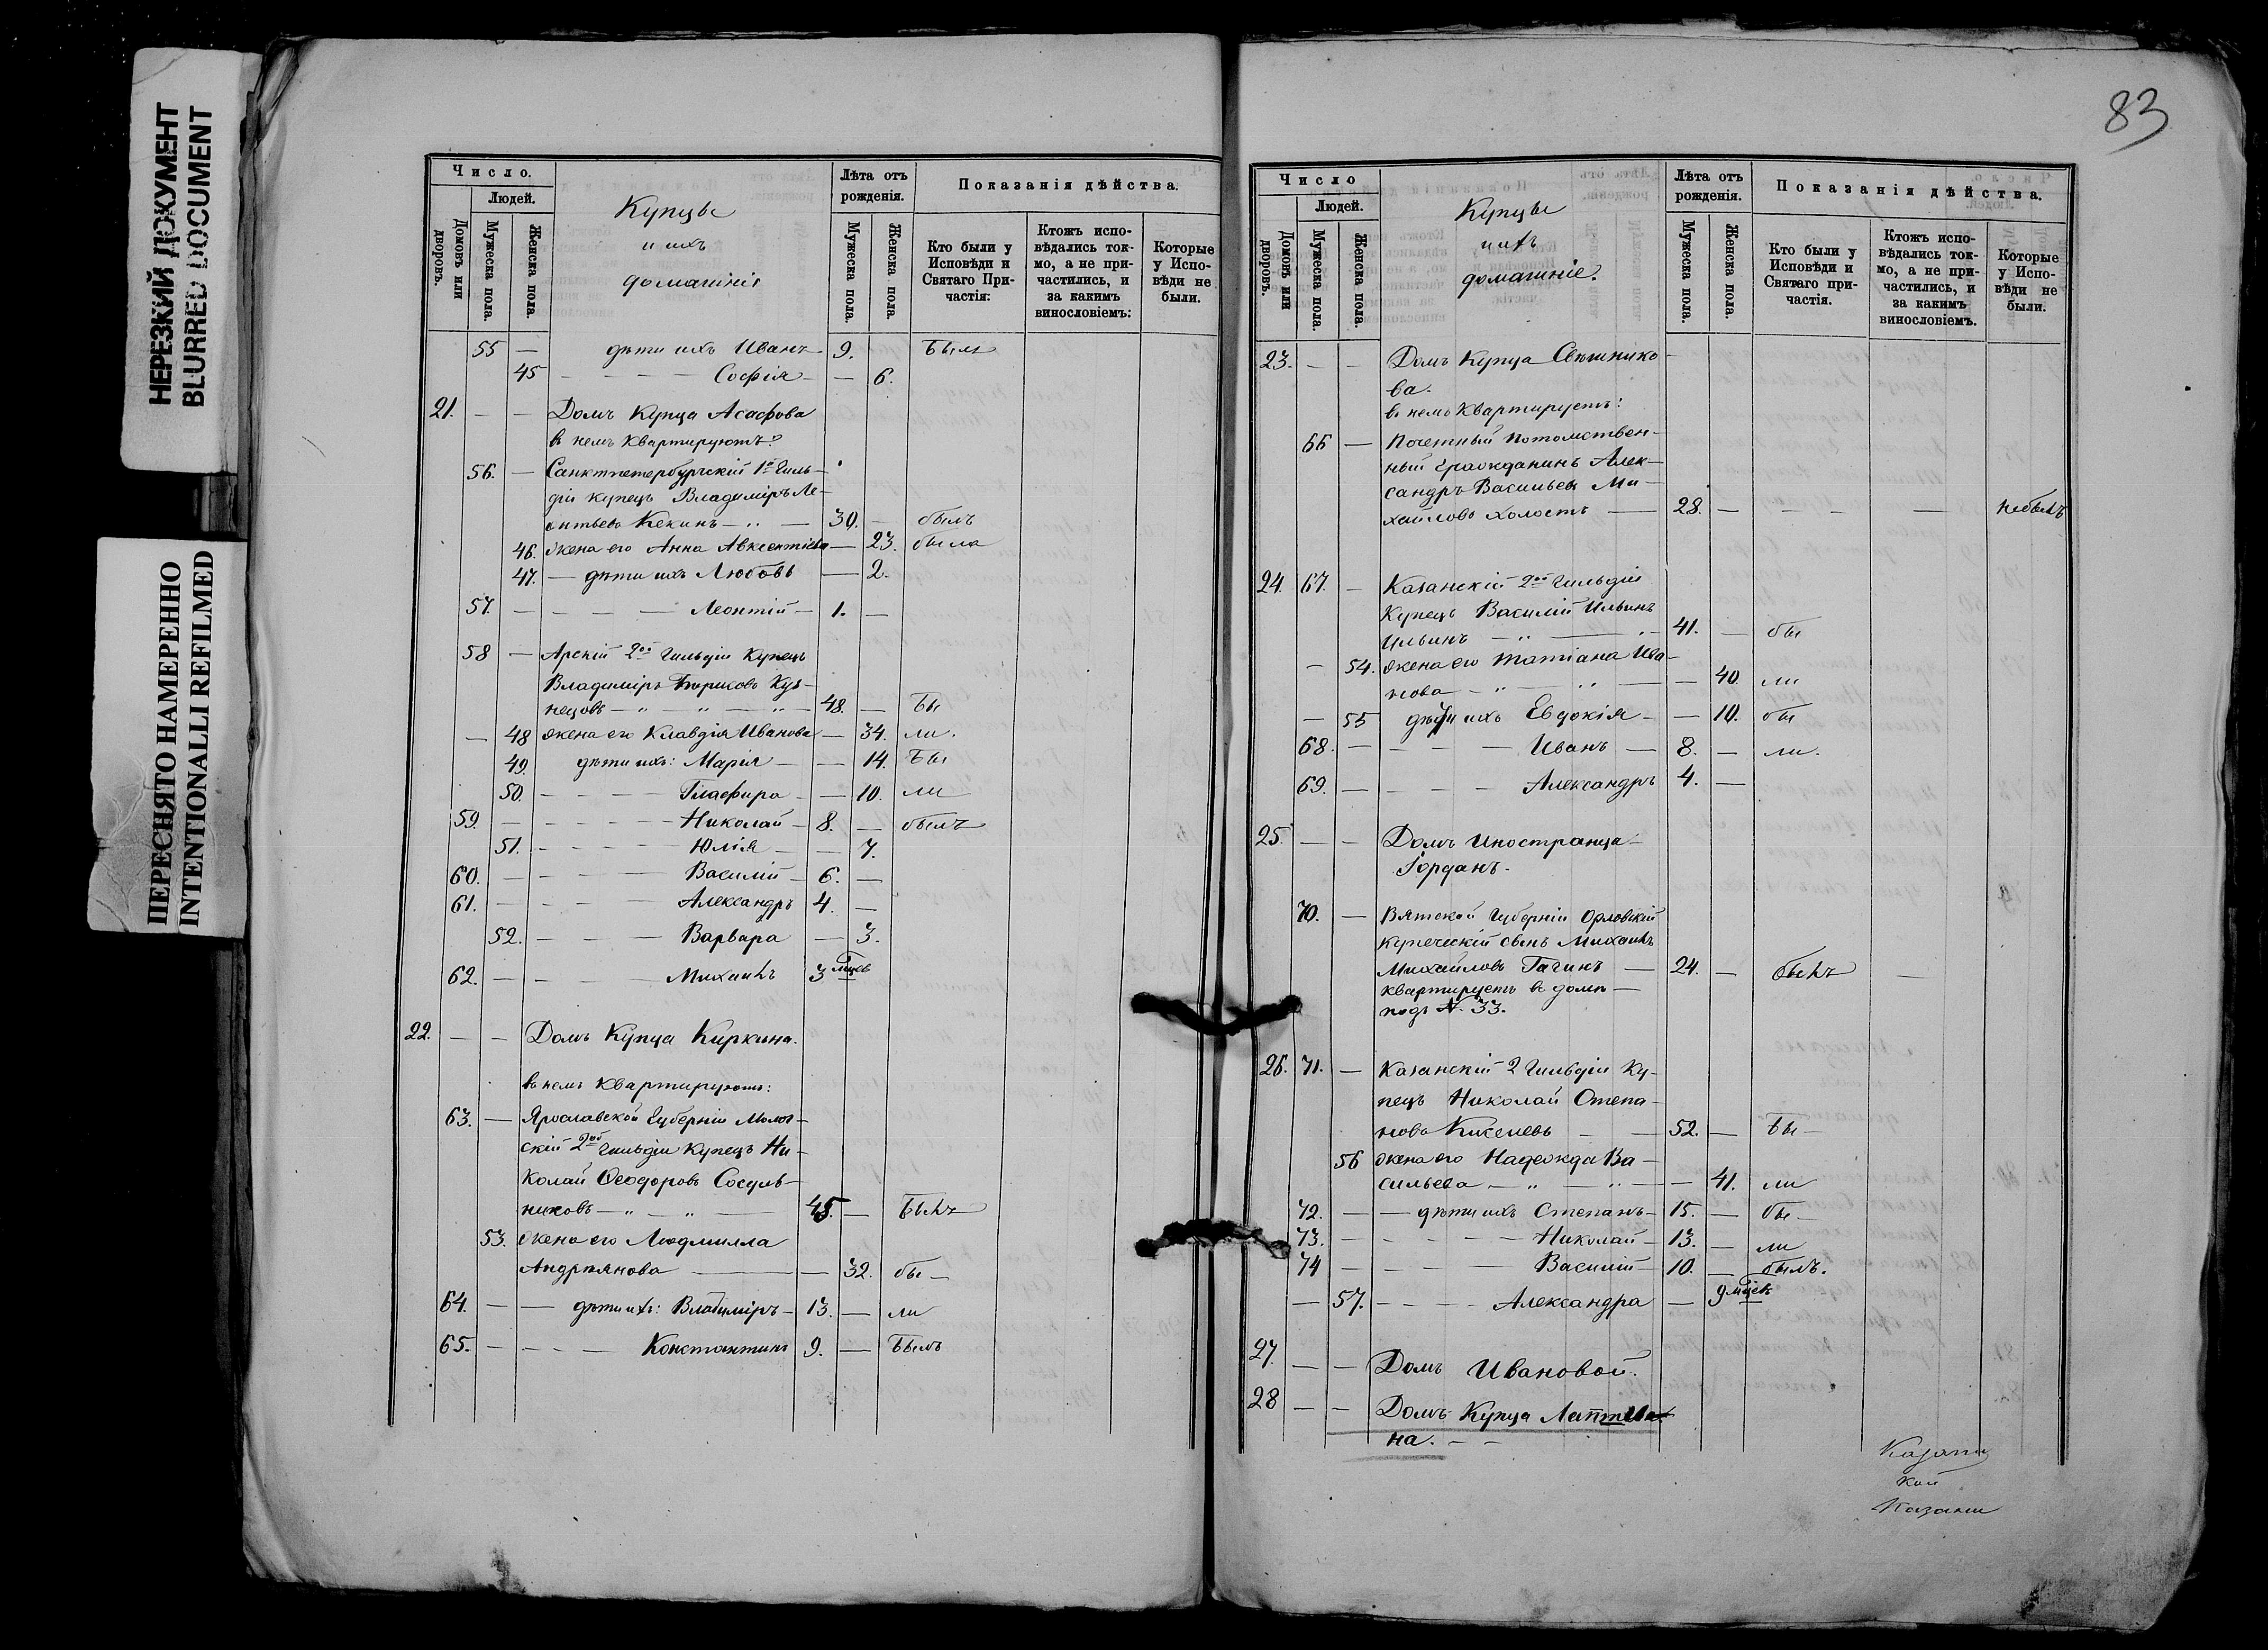 НЕРЕЗКИЙ ДОКУМЕНТ
BLURRED DOCUMENT
ПЕРЕСНЯТО НАМЕРЕННО
INTENTIONALLI REFILMED
Число.
Людей.
Домовъ или дворовъ.
Мужеска пола.
Женска пола.
Купцы
и ихъ
домашніе
Лѣта отъ рожденія.
Мужеска пола.
Женска пола.
Показанія дѣйства.
Кто были у Исповѣди и Святаго Причастія:
Ктожъ исповѣдались токмо, а не причастились, и за какимъ винословіемъ:
Которые у Исповѣди не были.
55 — дѣти ихъ Иванъ 9. былъ
45 — — — — Софія — — 6.
21. — — Домъ Купца Асафова
въ немъ квартируютъ:
56. — Санктпетербургскій 1й Гиль-
діи купецъ Владиміръ Ле-
онтьевъ Кекинъ — „ — 30. — былъ
46. жена его Анна Авксентіева — 23. была
47. — дѣти ихъ Любовь — 2.
57. — — — — Леонтій — 1. —
58 — Арскій 2ой Гильдіи Купецъ
Владиміръ Борисовъ Куз-
нецовъ — „ — „ — „ — 48. — бы
— 48 жена его Клавдія Иванова — 34. ли.
49. дѣти ихъ: Марія — — 14. бы
50. — — — — Глафира — — 10. ли
59. — — — — — Николай — 8. — былъ
51. — — — — Юлія — — 7.
60. — — — — Василій — 6. —
61. — — — — Александръ 4. —
52. — — — Варвара — 3.
62. — — — Михаилъ 3 мцев
22. — — Домъ Купца Киркина.
въ немъ квартируютъ:
63. — Ярославской Губерніи Молог-
скій 2ой гильдіи Купецъ Ни-
колай Ѳеодоровъ Сосуль-
никовъ — „ — „ — 45. — былъ
53. жена его Людмилла
Андріянова — — 32. бы —
64. — — дѣти ихъ: Владиміръ — 13. — ли
65. — — — — Константинъ 9. — былъ
83
Число
Людей.
Домовъ или дворовъ.
Мужеска пола.
Женска пола.
Купцы
и ихъ
домашніе.
Лѣта отъ рожденія.
Мужеска пола.
Женска пола.
Показанія дѣйства.
Кто были у Исповѣди и Святаго причастія.
Ктожъ исповѣдались токмо, а не причастились, и за какимъ винословіемъ.
Которые у Исповѣди не были.
23. — — Домъ Купца Свѣшнико-
ва.
въ немъ Квартируетъ:
66 — Почетный потомствен-
ный гражданинъ Алек-
сандръ Васильевъ Ми-
хайловъ холостъ — 28. — — — — небылъ
24. 67. — Казанскій 2ой Гильдіи
Купецъ Василій Ильинъ
Ильинъ — „ — „ — 41. — бы
— 54. жена его Татіана Ива-
нова — „ — „ — — 40. ли
— 55 дѣти ихъ Евдокія — — 10. бы
68. — — — — Иванъ — 8. — ли.
69. — — — — Александръ 4. —
25. — — Домъ Иностранца
Іорданъ.
70. — Вятской Губерніи Орловскій
купеческій сынъ Михаилъ
Михайловъ Гагинъ — 24. — былъ —
квартируетъ въ домѣ —
подъ N. 33.
26. 71. — Казанскій 2 Гильдіи Ку-
пецъ Николай Степа-
новъ Киселевъ — — 52. — бы —
56 жена его Надежда Ва-
сильева — „ — „ — — 41. ли
72. — — дѣти ихъ Степанъ — 15. — бы —
73. — — — — Николай — 13. — ли
74 — — — — Василій — 10. — былъ.
— 57. — — — Александра — 9 мцев
27. — — Домъ Ивановой.
28 — — Домъ Купца
на. — —
Казани
кой
Казани